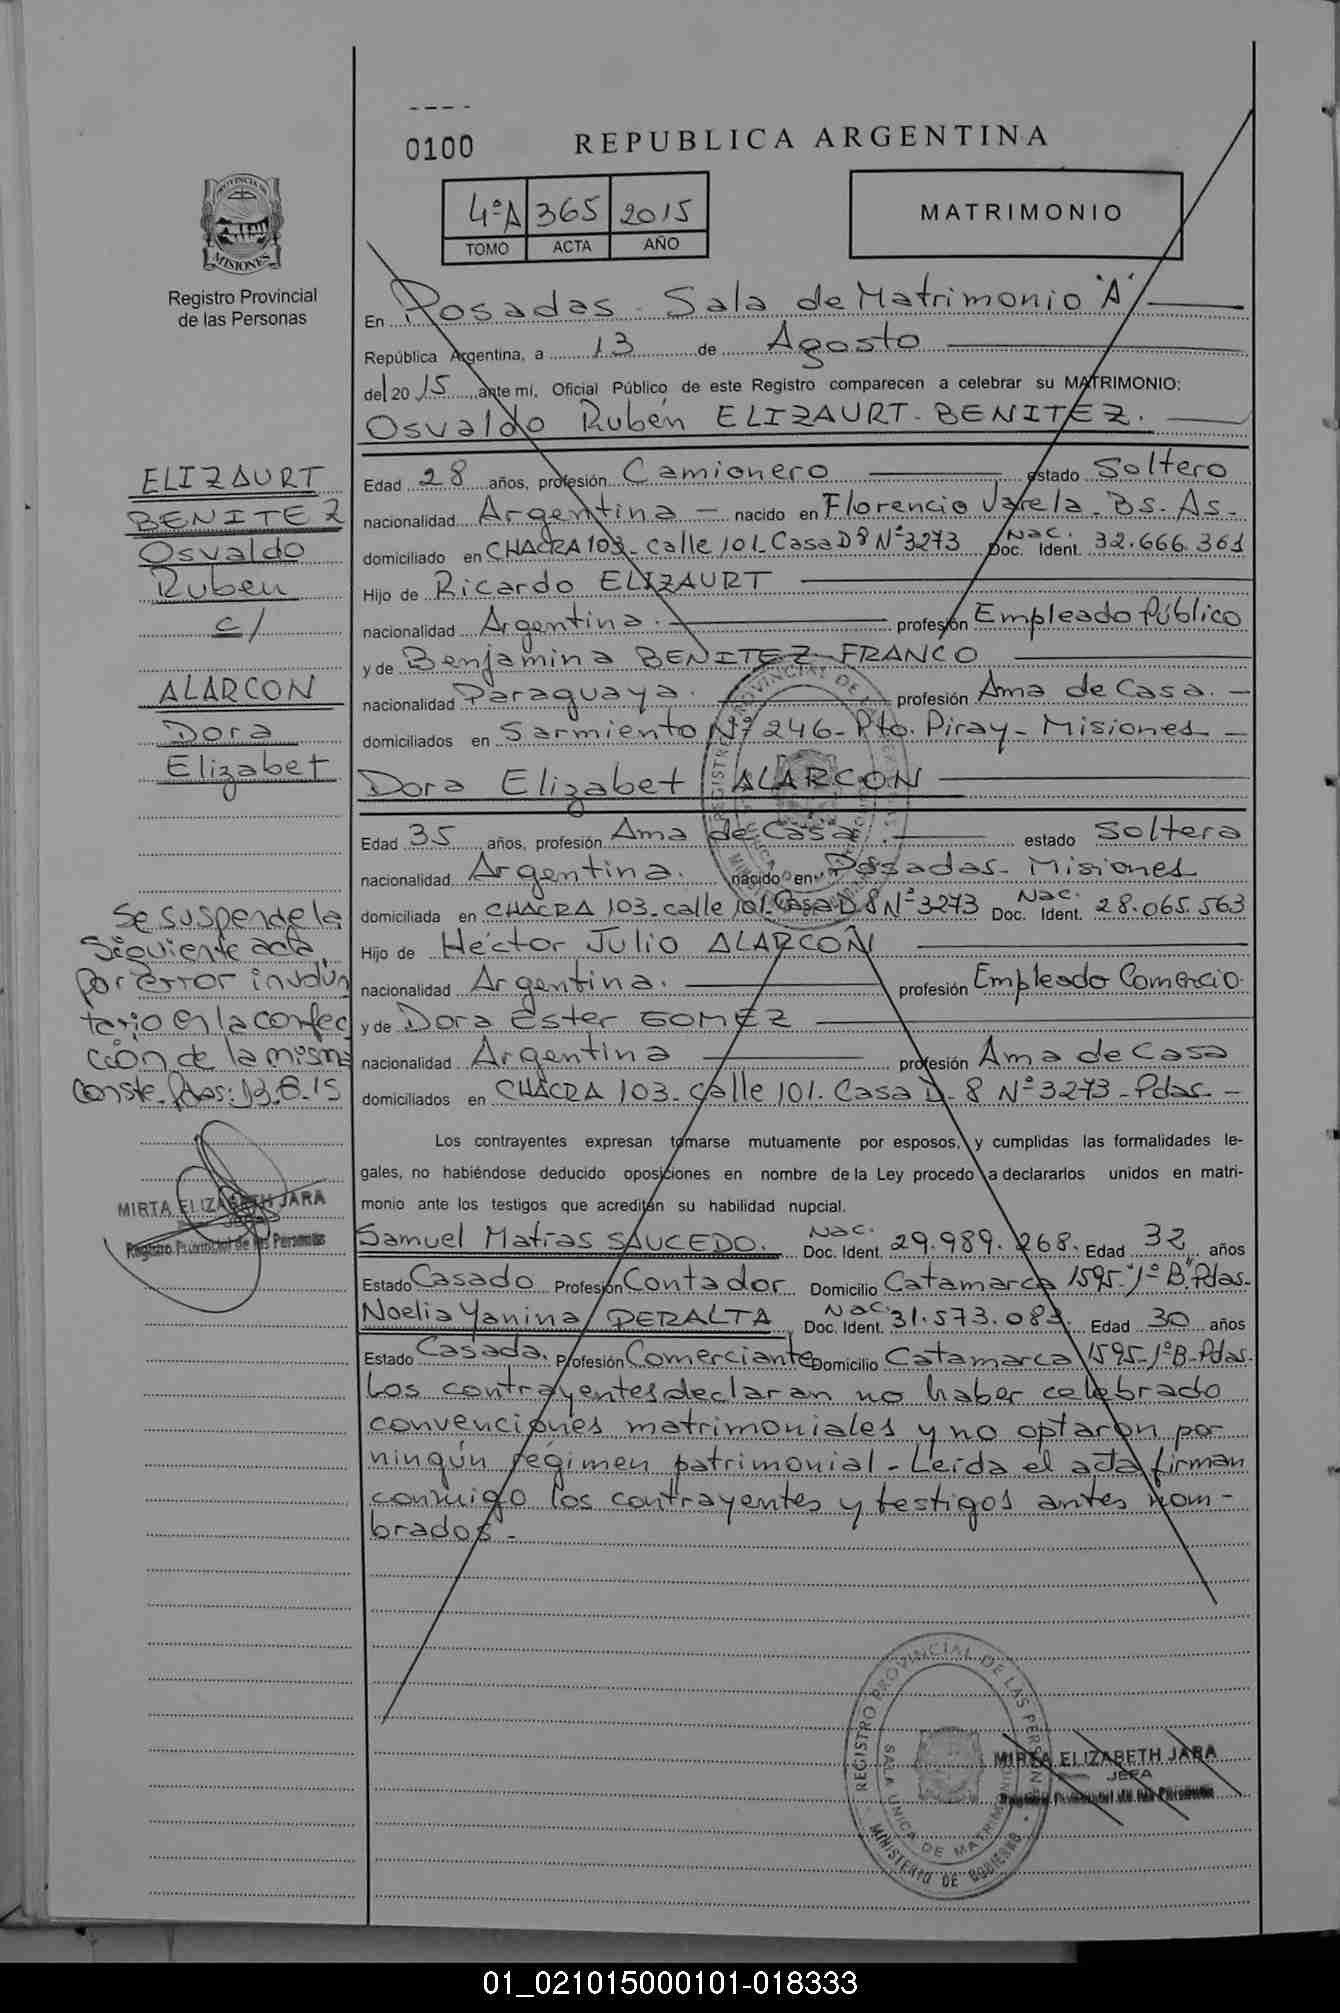 0100
REPUBLICA ARGENTINA
4ºA 365 2015
TOMO ACTA AÑO
MATRIMONIO
PROVINCIA DE
MISIONES
Registro Provincial
de las Personas
En Posadas. Sala de Matrimonio "A"
República Argentina, a 13 de Agosto
del 20 15, ante mí, Oficial Público de este Registro comparecen a celebrar su MATRIMONIO:
Osvaldo Rubén ELIZAURT-BENITEZ.
Edad 28 años, profesión Camionero estado Soltero
nacionalidad Argentina - nacido en Florencio Varela. Bs. As.
domiciliado en CHACRA 103. Calle 101. Casa D8 Nº3273 Nac. Doc. Ident. 32.666.361
Hijo de Ricardo ELIZAURT
nacionalidad Argentina. profesión Empleado Público
y de Benjamina BENITEZ FRANCO
nacionalidad Paraguaya. profesión Ama de Casa. -
domiciliados en Sarmiento Nº 246-Pto. Piray- Misiones -
Dora Elizabet ALARCON
Edad 35 años, profesión Ama de Casa. estado Soltera
nacionalidad Argentina. nacido en Posadas. Misiones
domiciliada en CHACRA 103. calle 101. Casa D8 Nº3273 Nac. Doc. Ident. 28.065.563
Hijo de Héctor Julio ALARCON
nacionalidad Argentina. profesión Empleado Comercio.
y de Dora Ester GOMEZ
nacionalidad Argentina profesión Ama de Casa
domiciliados en CHACRA 103. calle 101. Casa D-8 Nº3273-Pdas. -
Los contrayentes expresan tomarse mutuamente por esposos, y cumplidas las formalidades le-
gales, no habiéndose deducido oposiciones en nombre de la Ley procedo a declararlos unidos en matri-
monio ante los testigos que acreditan su habilidad nupcial.
Samuel Matías SAUCEDO. Nac. Doc. Ident. 29.989.268. Edad 32 años
Estado Casado Profesión Contador Domicilio Catamarca 1595-"1º B". Pdas.
Noelia Yanina PERALTA Nac. Doc. Ident. 31.573.083. Edad 30 años
Estado Casada. Profesión Comerciante Domicilio Catamarca 1595-1ºB-Pdas.
Los contrayentes declaran no haber celebrado
convenciones matrimoniales y no optaron por
ningún régimen patrimonial - Leída el acta firman
conmigo los contrayentes y testigos antes nom-
brados.-
ELIZAURT
BENITEZ
Osvaldo
Ruben
c/
ALARCON
Dora
Elizabet
Se suspende la
siguiente acta,
por error involun
tario en la confec
ción de la misma
Conste. Pdas: 13.8.15
MIRTA ELIZABETH JARA
JEFA
Registro Provincial de las Personas
REGISTRO PROVINCIAL DE LAS PERSONAS
SALA UNICA DE MATRIMONIO
MINISTERIO DE GOBIERNO
MIRTA ELIZABETH JARA
JEFA
Registro Provincial de las Personas
01_021015000101-018333